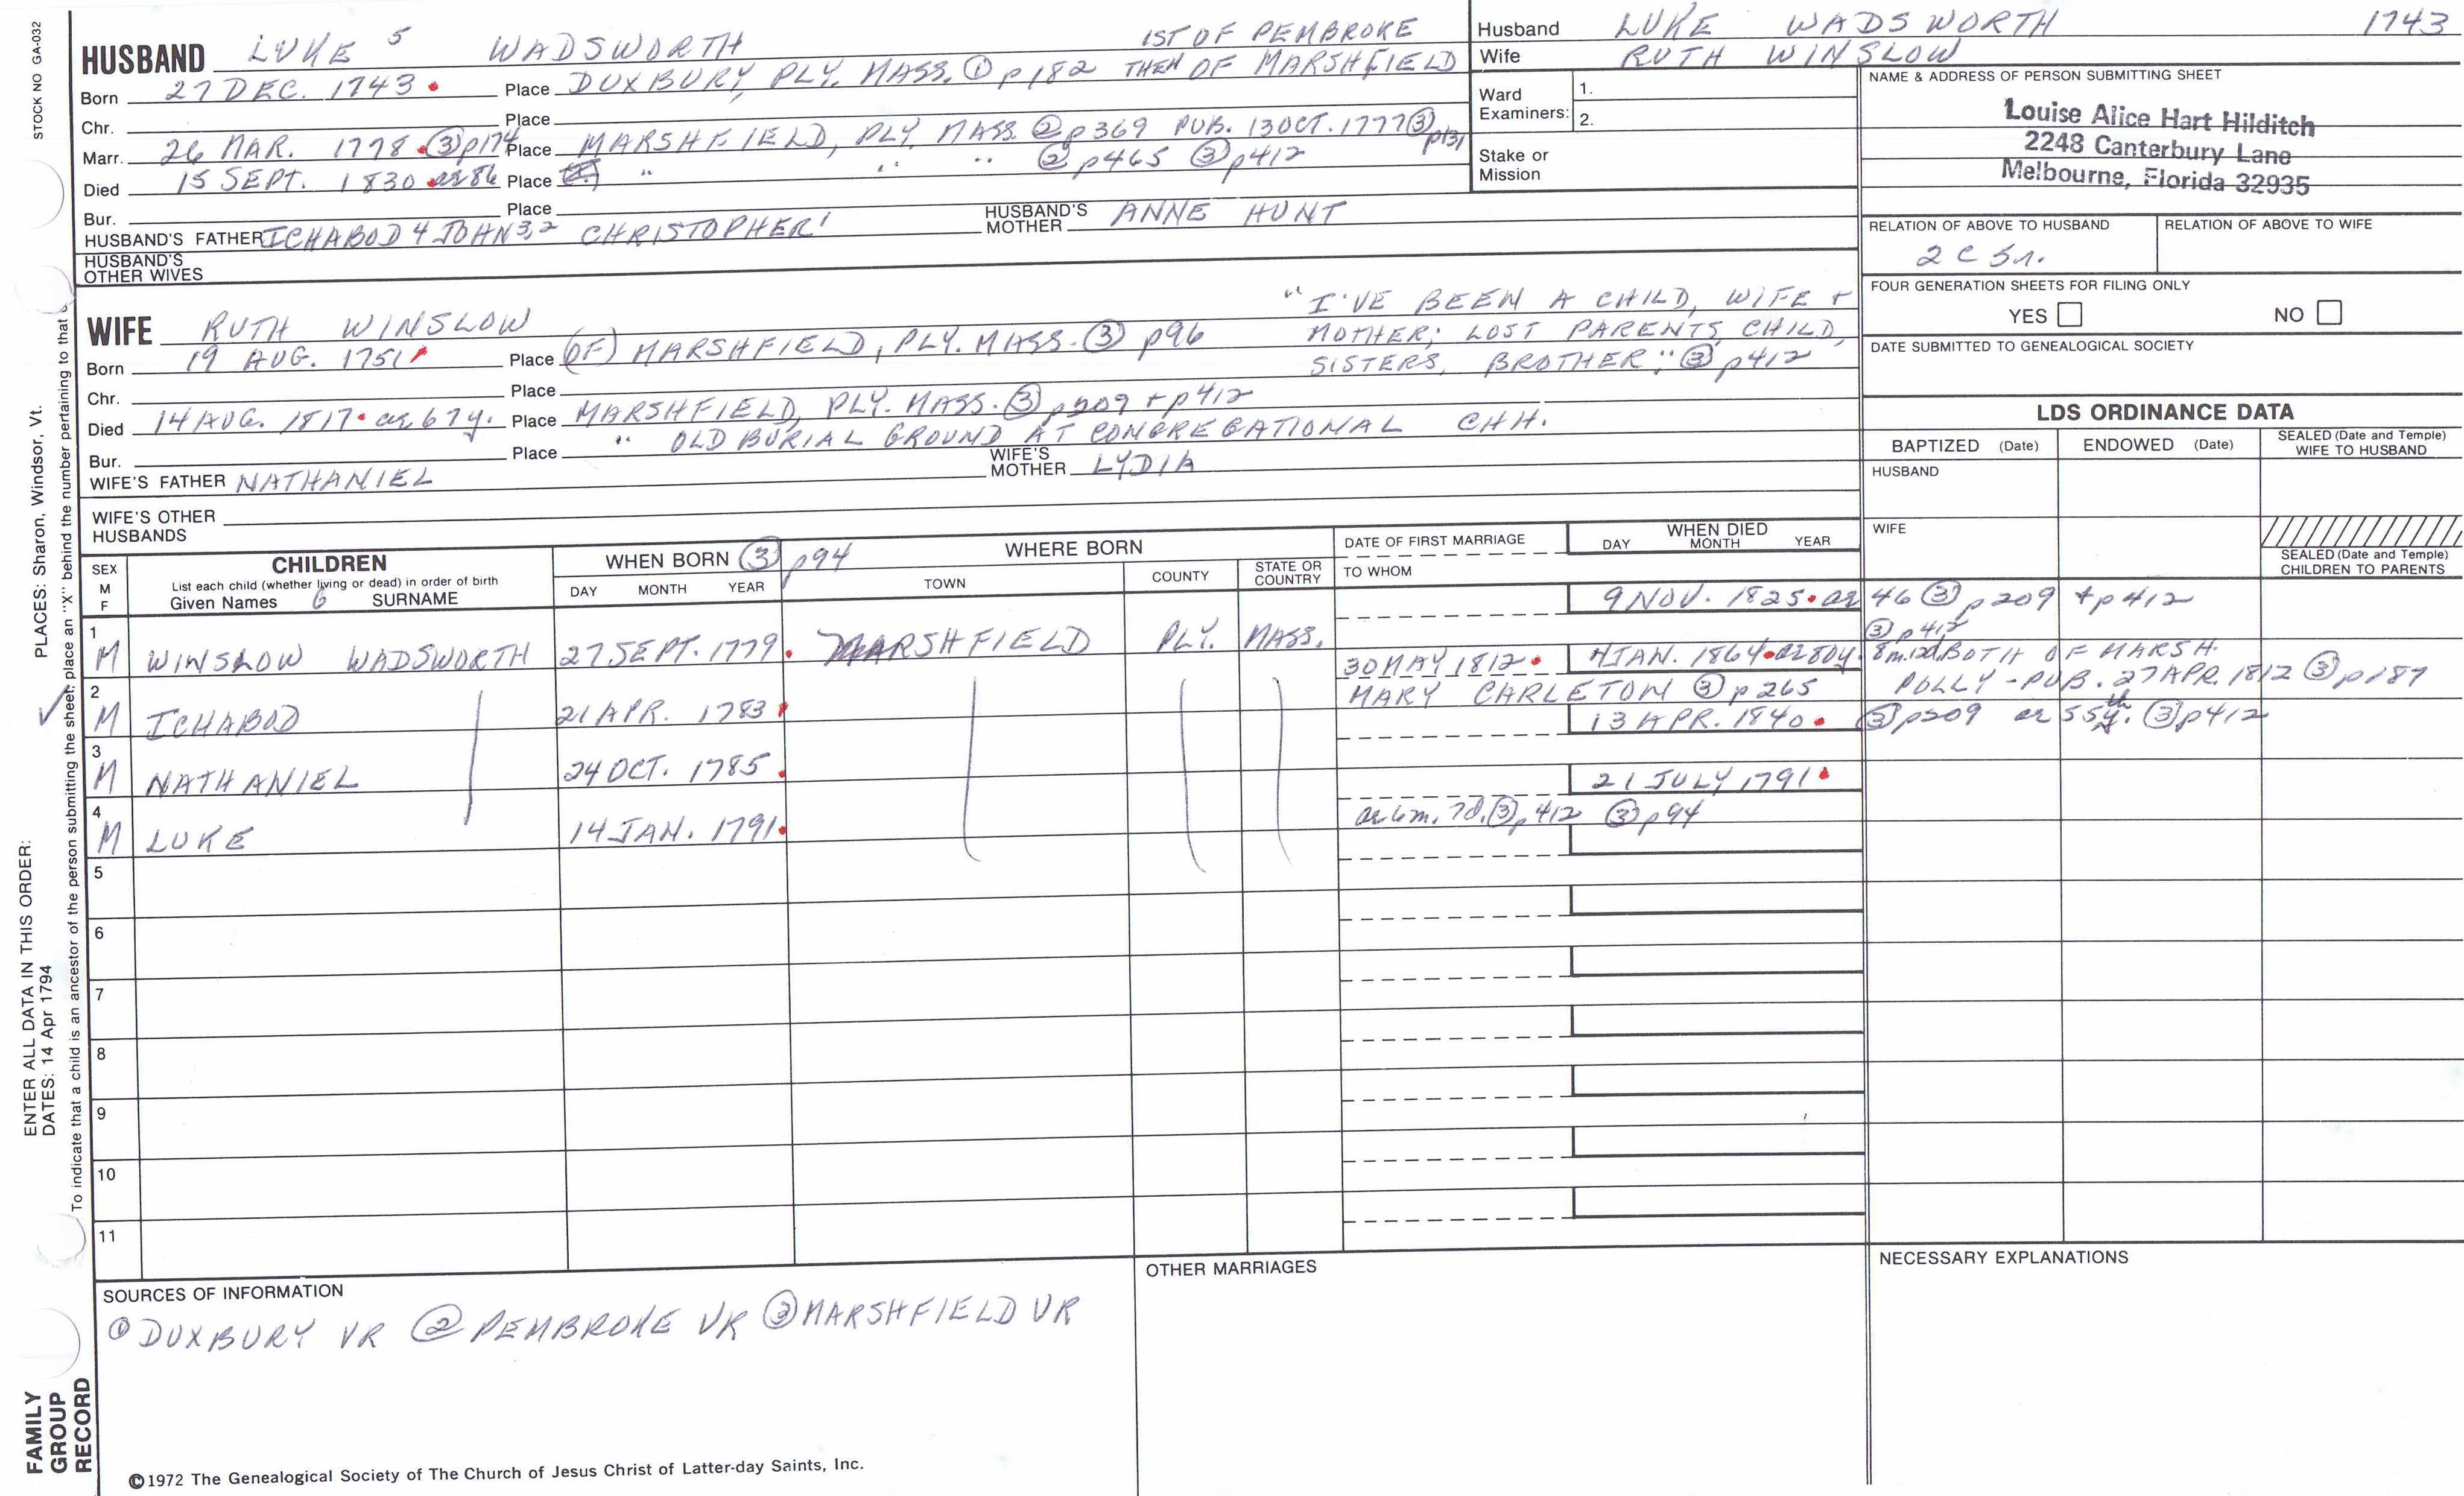 STOCK NO GA-032
HUSBAND LUKE 5 WADSWORTH 1ST OF PEMBROKE
Born 27 DEC. 1743 Place DUXBURY, PLY. MASS. ① p182 THEN OF MARSHFIELD
Chr. Place
Marr. 26 MAR. 1778 ③ p174 Place MARSHFIELD, PLY. MASS. ② p369 PUB. 13 OCT. 1777 ③ p131
Died 15 SEPT. 1830 ae 86 Place " " " ② p465 ③ p412
Bur. Place
HUSBAND'S FATHER ICHABOD 4 JOHN 3,2 CHRISTOPHER 1 HUSBAND'S MOTHER ANNE HUNT
HUSBAND'S OTHER WIVES
WIFE RUTH WINSLOW
Born 19 AUG. 1751 Place (OF) MARSHFIELD, PLY. MASS. ③ p96
"I'VE BEEN A CHILD, WIFE +
MOTHER; LOST PARENTS, CHILD,
SISTERS, BROTHER." ③ p412
Chr. Place
Died 14 AUG. 1817 ae 67y. Place MARSHFIELD, PLY. MASS. ③ p209 + p412
Bur. Place " OLD BURIAL GROUND AT CONGREGATIONAL CHH.
WIFE'S FATHER NATHANIEL WIFE'S MOTHER LYDIA
WIFE'S OTHER HUSBANDS
Husband LUKE WADSWORTH 1743
Wife RUTH WINSLOW
Ward Examiners: 1.
2.
Stake or Mission
NAME & ADDRESS OF PERSON SUBMITTING SHEET
Louise Alice Hart Hilditch
2248 Canterbury Lane
Melbourne, Florida 32935
RELATION OF ABOVE TO HUSBAND RELATION OF ABOVE TO WIFE
2 C 5r.
FOUR GENERATION SHEETS FOR FILING ONLY
YES NO
DATE SUBMITTED TO GENEALOGICAL SOCIETY
LDS ORDINANCE DATA
BAPTIZED (Date) ENDOWED (Date) SEALED (Date and Temple) WIFE TO HUSBAND
HUSBAND
WIFE
SEALED (Date and Temple) CHILDREN TO PARENTS
SEX M F CHILDREN WHEN BORN ③ p94 WHERE BORN DATE OF FIRST MARRIAGE WHEN DIED
List each child (whether living or dead) in order of birth
Given Names 6 SURNAME DAY MONTH YEAR TOWN COUNTY STATE OR COUNTRY TO WHOM DAY MONTH YEAR
9 NOV. 1825 ae 46 ③ p209 + p412
1 M WINSLOW WADSWORTH 27 SEPT. 1779 MARSHFIELD PLY. MASS.
③ p412
30 MAY 1812 4 JAN. 1864 ae 80y. 8m. 12d. BOTH OF MARSH.
2 M ICHABOD 21 APR. 1783 MARY CARLETON ③ p265 POLLY - PUB. 27 APR. 1812 ③ p187
13 APR. 1840 ③ p209 ae 55th y. ③ p412
3 M NATHANIEL 24 OCT. 1785
21 JULY 1791
4 M LUKE 14 JAN. 1791 ae 6m. 7d. ③ p412 ③ p94
5
6
7
8
9
10
11
SOURCES OF INFORMATION
① DUXBURY VR ② PEMBROKE VR ③ MARSHFIELD VR
OTHER MARRIAGES
NECESSARY EXPLANATIONS
©1972 The Genealogical Society of The Church of Jesus Christ of Latter-day Saints, Inc.
ENTER ALL DATA IN THIS ORDER:
DATES: 14 Apr 1794
PLACES: Sharon, Windsor, Vt.
To indicate that a child is an ancestor of the person submitting the sheet, place an "X" behind the number pertaining to that
FAMILY
GROUP
RECORD